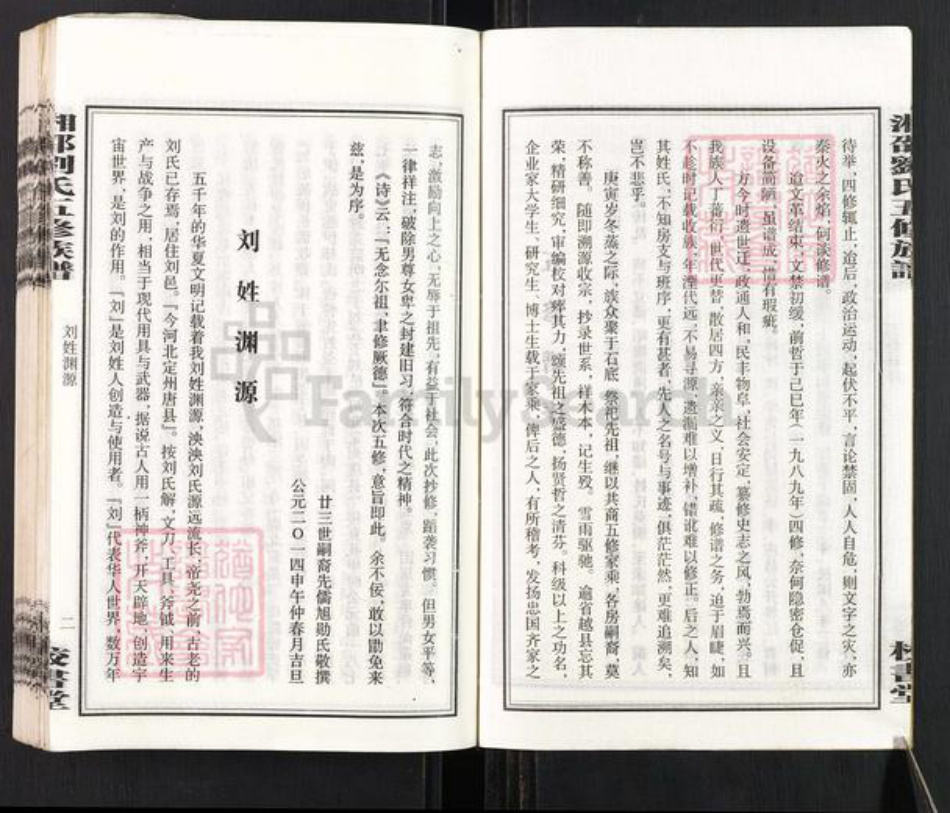 湘邵劉氏五修族譜
待举，四修辄止，迨后，政治运动，起伏不平，言论禁固，人人自危，则文字之灾，亦
秦火之余焰，何谈修谱。
迨文革结束，文禁初缓，前哲于己巳年（一九八九年）四修，奈何隐密仓促，且
设备简陋，虽谱成，惜有瑕疵。
方今时遗世迁，政通人和，民丰物阜，社会安定，纂修史志之风，勃焉而兴。且
我族人丁蕃衍，世代更替，散居四方，亲亲之义，日行其疏，修谱之务，迫于眉睫，如
不趁时记载收族，年湮代远，不易寻源，遗漏难以增补，错讹难以修正。后之人，知
其姓氏，不知房支与班序，更有甚者，先人之名号与事迹，俱茫茫然，更难追溯矣，
岂不悲乎。
庚寅岁冬蒸之际，族众聚于石底，祭祀先祖，继以共商五修家乘，各房嗣裔，莫
不称善。随即溯源收宗，抄录世系，样木本，记生殁。雪雨驱驰。逾省越县忘其
荣，精研细究，审编校对瘁其力，颂先祖之盛德，扬贤哲之清芬。科级以上之功名，
企业家大学生、研究生、博士生载于家乘，俾后之人，有所稽考，发扬忠国齐家之
校書堂
志，激励向上之心，无辱于祖先，有益于社会，此次抄修，蹈袭习惯。但男女平等，
一律祥注，破除男尊女卑之封建旧习，符合时代之精神。
《诗》云：『无念尔祖，聿修厥德』，本次五修，意旨即此。余不佞，敢以勖免来
兹，是为序。
廿三世嗣裔先儒旭勋氏敬撰
公元二〇一四甲午仲春月吉旦
刘姓渊源
五千年的华夏文明记载着我刘姓渊源，泱泱刘氏源远流长，帝尧之前，古老的
刘氏已存焉，居住刘邑。『今河北定州唐县』。按刘氏解，文刀，工具，斧钺，用来生
产与战争之用，相当于现代用具与武器，据说古人用一柄神斧，开天辟地，创造宇
宙世界，是刘的作用。『刘』是刘姓人创造与使用者。『刘』代表华人世界，数万年
湘邵劉氏五修族譜
刘姓渊源
二
校書堂
FamilySearch